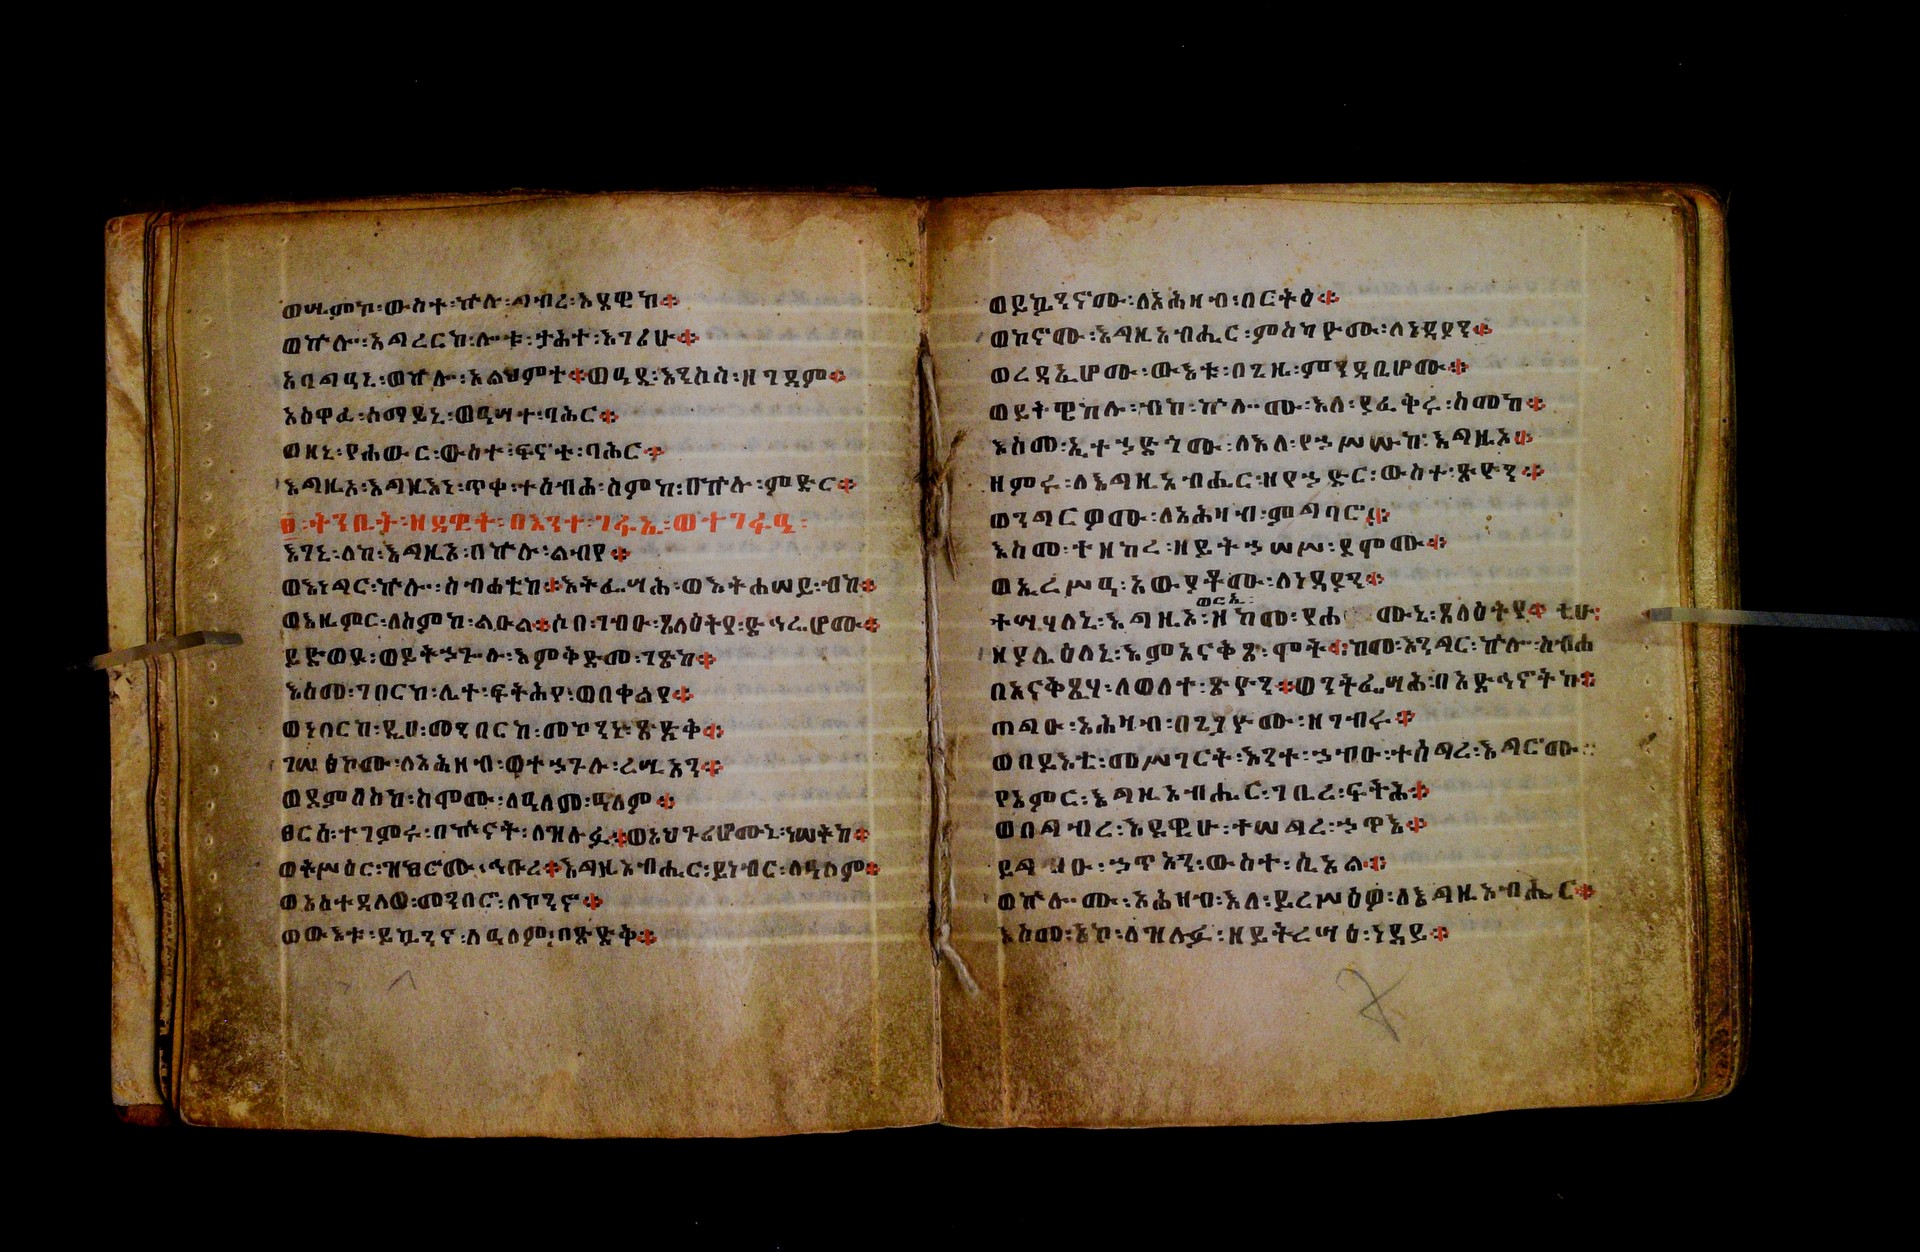 ወሢምኮ፡ውስተ፡ኵሉ፡ግብረ፡እደዊከ፨
ወኵሎ፡አግረርከ፡ሎቱ፡ታሕተ፡እገሪሁ፨
አባግዒኒ፡ወኵሎ፡አልህምተ፨ወዓዲ፡እንስሳ፡ዘገዳም፨
አዕዋፈ፡ሰማይኒ፡ወዓሣተ፡ባሕር፨
ወዘኒ፡የሐውር፡ውስተ፡ፍኖተ፡ባሕር፨
እግዚኦ፡እግዚእነ፡ጥቀ፡ተሰብሐ፡ስምከ፡በኵሉ፡ምድር፨
፱፡ትንቢት፡ዘዳዊት፡በእንተ፡ገራኢ፡ወተገራዒ፡
እገኒ፡ለከ፡እግዚኦ፡በኵሉ፡ልብየ፨
ወእነግር፡ኵሎ፡ስብሐቲከ፨እትፌሣሕ፡ወእትሐሠይ፡ብከ፨
ወእዜምር፡ለስምከ፡ልዑል፨ሶበ፡ገብኡ፡ጸላዕትየ፡ድኅሬሆሙ፨
ይድወዩ፡ወይትኀጐሉ፡እምቅድመ፡ገጽከ፨
እስመ፡ገበርከ፡ሊተ፡ፍትሕየ፡ወበቀልየ፨
ወነበርከ፡ዲበ፡መንበርከ፡መኰንነ፡ጽድቅ፨
ገሠፅኮሙ፡ለአሕዛብ፡ወተኀጕሉ፡ረሢዓን፨
ወደምሰስከ፡ስሞሙ፡ለዓለመ፡ዓለም፨
ፀርሰ፡ተገምሩ፡በኵናት፡ለዝሉፉ፨ወአህጕረሆሙኒ፡ነሠትከ፨
ወትሥዕር፡ዝክሮሙ፡ኅቡረ፨እግዚአብሔር፡ይነብር፡ለዓለም፨
ወአስተዳለወ፡መንበሮ፡ለኰንኖ፨
ወውእቱ፡ይኴንኖ፡ለዓለም፡በጽድቅ፨
ወይኴንኖሙ፡ለአሕዛብ፡በርትዕ፨
ወኮኖሙ፡እግዚአብሔር፡ምስካዮሙ፡ለነዳያን፨
ወረዳኢሆሙ፡ውእቱ፡በጊዜ፡ምንዳቤሆሙ፨
ወይትዌከሉ፡ብከ፡ኵሎሙ፡እለ፡ያፈቅሩ፡ስመከ፨
እስመ፡ኢተኀድጎሙ፡ለእለ፡የኀሥሡከ፡እግዚኦ፨
ዘምሩ፡ለእግዚአብሔር፡ዘየኀድር፡ውስተ፡ጽዮን፨
ወንግርዎሙ፡ለአሕዛብ፡ምግባሮ፨
እስመ፡ተዘከረ፡ዘይትኀሠሥ፡ደሞሙ፨
ወኢረሥዐ፡አውያቶሙ፡ለነዳያን፨
ወርኢ፡
ተሣሃለኒ፡እግዚኦ፡ዘከመ፡ያሐ ሙኒ፡ጸላዕትየ፨
ዘያሌዕለኒ፡እምአናቅጸ፡ሞት፨ከመ፡እንግር፡ኵሎ፡ስብሐ ቲሁ፡
በአናቅጺሃ፡ለወለተ፡ጽዮን፨ወንትፌሣሕ፡በአድኅኖትከ፨
ጠግዑ፡አሕዛብ፡በጌጋዮሙ፡ዘገብሩ፨
ወበይእቲ፡መሥገርት፡እንተ፡ኀብኡ፡ተሰግረ፡እግሮሙ፡
የአምር፡እግዚአብሔር፡ገቢረ፡ፍትሕ፨
ወበግብረ፡እደዊሁ፡ተሠግረ፡ኃጥእ፨
ይግብኡ፡ኃጥኣን፡ውስተ፡ሲኦል፨
ወኵሎሙ፡አሕዛብ፡እለ፡ይረሥዕዎ፡ለእግዚአብሔር፨
እስመ፡አኮ፡ለዝሉፉ፡ዘይትረሣዕ፡ነዳይ፨